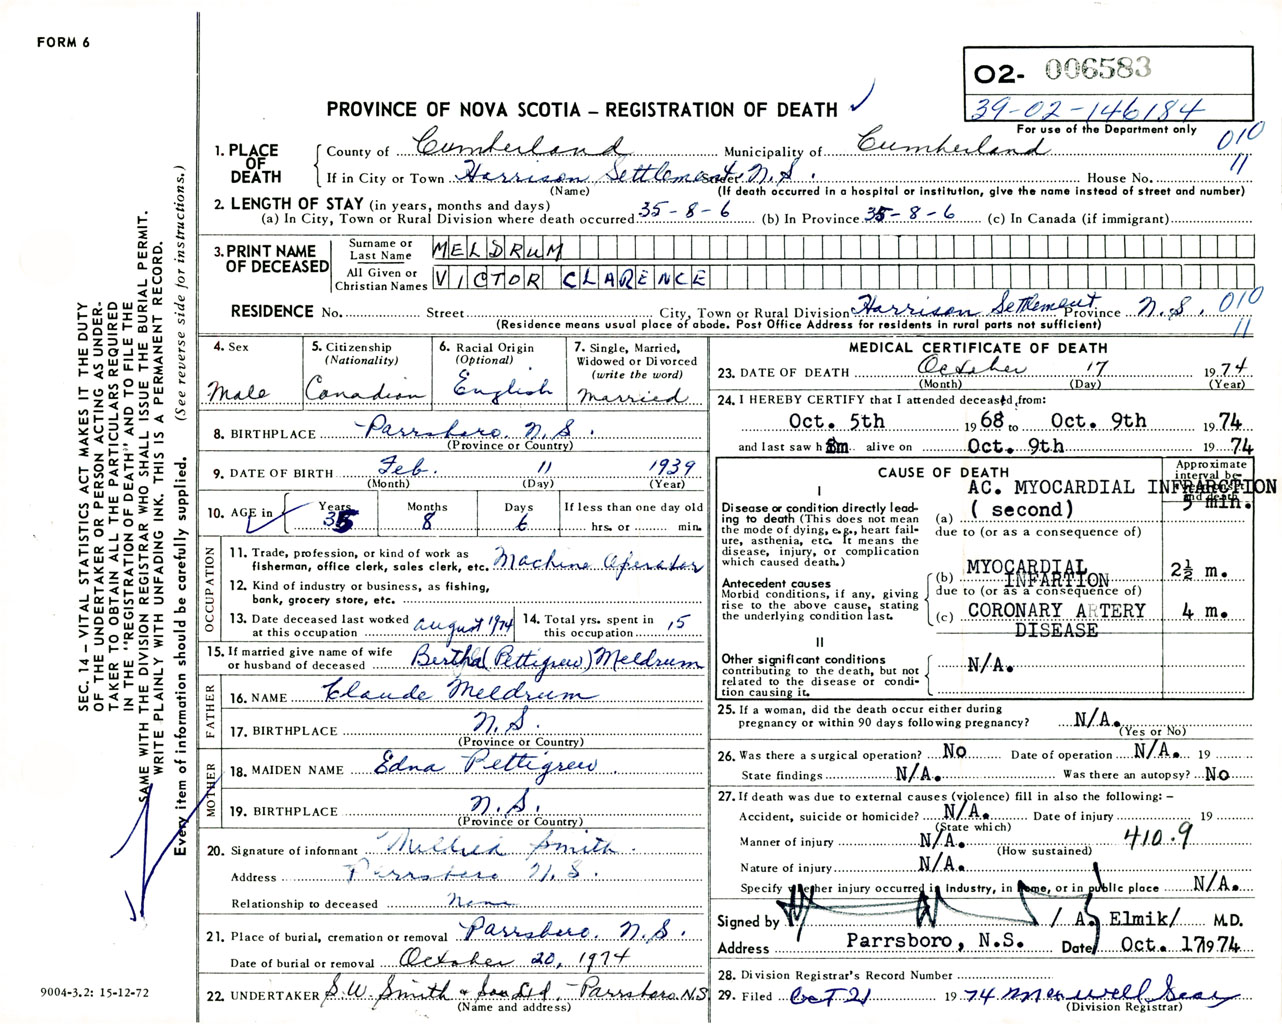 FORM 6
O2- 006583
39-02-146184
For use of the Department only
PROVINCE OF NOVA SCOTIA – REGISTRATION OF DEATH ✓
010
11
1. PLACE OF DEATH
County of Cumberland Municipality of Cumberland
If in City or Town Harrison Settlement N.S. House No.
(Name) (If death occurred in a hospital or institution, give the name instead of street and number)
2. LENGTH OF STAY (in years, months and days)
(a) In City, Town or Rural Division where death occurred 35-8-6 (b) In Province 35-8-6 (c) In Canada (if immigrant)
3. PRINT NAME OF DECEASED
Surname or Last Name MELDRUM
All Given or Christian Names VICTOR CLARENCE
RESIDENCE No. Street City, Town or Rural Division Harrison Settlement Province N.S. 010
11
(Residence means usual place of abode. Post Office Address for residents in rural parts not sufficient)
4. Sex
Male
5. Citizenship
(Nationality)
Canadian
6. Racial Origin
(Optional)
English
7. Single, Married,
Widowed or Divorced
(write the word)
Married
8. BIRTHPLACE Parrsboro, N.S.
(Province or Country)
9. DATE OF BIRTH Feb. 11 1939
(Month) (Day) (Year)
10. AGE in Years Months Days If less than one day old
35 8 6 hrs. or min.
OCCUPATION
11. Trade, profession, or kind of work as
fisherman, office clerk, sales clerk, etc. Machine Operator
12. Kind of industry or business, as fishing,
bank, grocery store, etc.
13. Date deceased last worked
at this occupation August 1974
14. Total yrs. spent in
this occupation 15
15. If married give name of wife
or husband of deceased Bertha (Pettigrew) Meldrum
FATHER
16. NAME Claude Meldrum
17. BIRTHPLACE N.S.
(Province or Country)
MOTHER
18. MAIDEN NAME Edna Pettigrew
19. BIRTHPLACE N.S.
(Province or Country)
20. Signature of informant Mildred Smith
Address Parrsboro N.S.
Relationship to deceased None
21. Place of burial, cremation or removal Parrsboro, N.S.
Date of burial or removal October 20, 1974
22. UNDERTAKER S.W. Smith & Son Ltd, Parrsboro N.S
(Name and address)
MEDICAL CERTIFICATE OF DEATH
23. DATE OF DEATH October 17 1974
(Month) (Day) (Year)
24. I HEREBY CERTIFY that I attended deceased from:
Oct. 5th 1968 to Oct. 9th 1974
and last saw him alive on Oct. 9th 1974
CAUSE OF DEATH
Approximate
interval be
and death
I
AC. MYOCARDIAL INFRARCTION
Disease or condition directly lead-
ing to death (This does not mean
the mode of dying, e.g., heart fail-
ure, asthenia, etc. It means the
disease, injury, or complication
which caused death.)
(a) ( second) 5 min.
due to (or as a consequence of)
Antecedent causes
Morbid conditions, if any, giving
rise to the above cause, stating
the underlying condition last.
(b) MYOCARDIAL INFARTION 2½ m.
due to (or as a consequence of)
(c) CORONARY ARTERY DISEASE 4 m.
II
Other significant conditions
contributing to the death, but not
related to the disease or condi-
tion causing it.
N/A.
25. If a woman, did the death occur either during
pregnancy or within 90 days following pregnancy? N/A.
(Yes or No)
26. Was there a surgical operation? No Date of operation N/A. 19
State findings N/A. Was there an autopsy? No
27. If death was due to external causes (violence) fill in also the following: –
Accident, suicide or homicide? N/A. Date of injury 19
(State which)
Manner of injury N/A. 410.9
(How sustained)
Nature of injury N/A.
Specify whether injury occurred in Industry, in home, or in public place N/A.
Signed by / A. Elmik/ M.D.
Address Parrsboro, N.S. Date Oct. 17 1974
28. Division Registrar's Record Number
29. Filed Oct 21 1974
(Division Registrar)
SEC. 14 – VITAL STATISTICS ACT MAKES IT THE DUTY
OF THE UNDERTAKER OR PERSON ACTING AS UNDER-
TAKER TO OBTAIN ALL THE PARTICULARS REQUIRED
IN THE "REGISTRATION OF DEATH" AND TO FILE THE
SAME WITH THE DIVISION REGISTRAR WHO SHALL ISSUE THE BURIAL PERMIT.
WRITE PLAINLY WITH UNFADING INK. THIS IS A PERMANENT RECORD.
Every item of information should be carefully supplied. (See reverse side for instructions.)
9004-3.2: 15-12-72